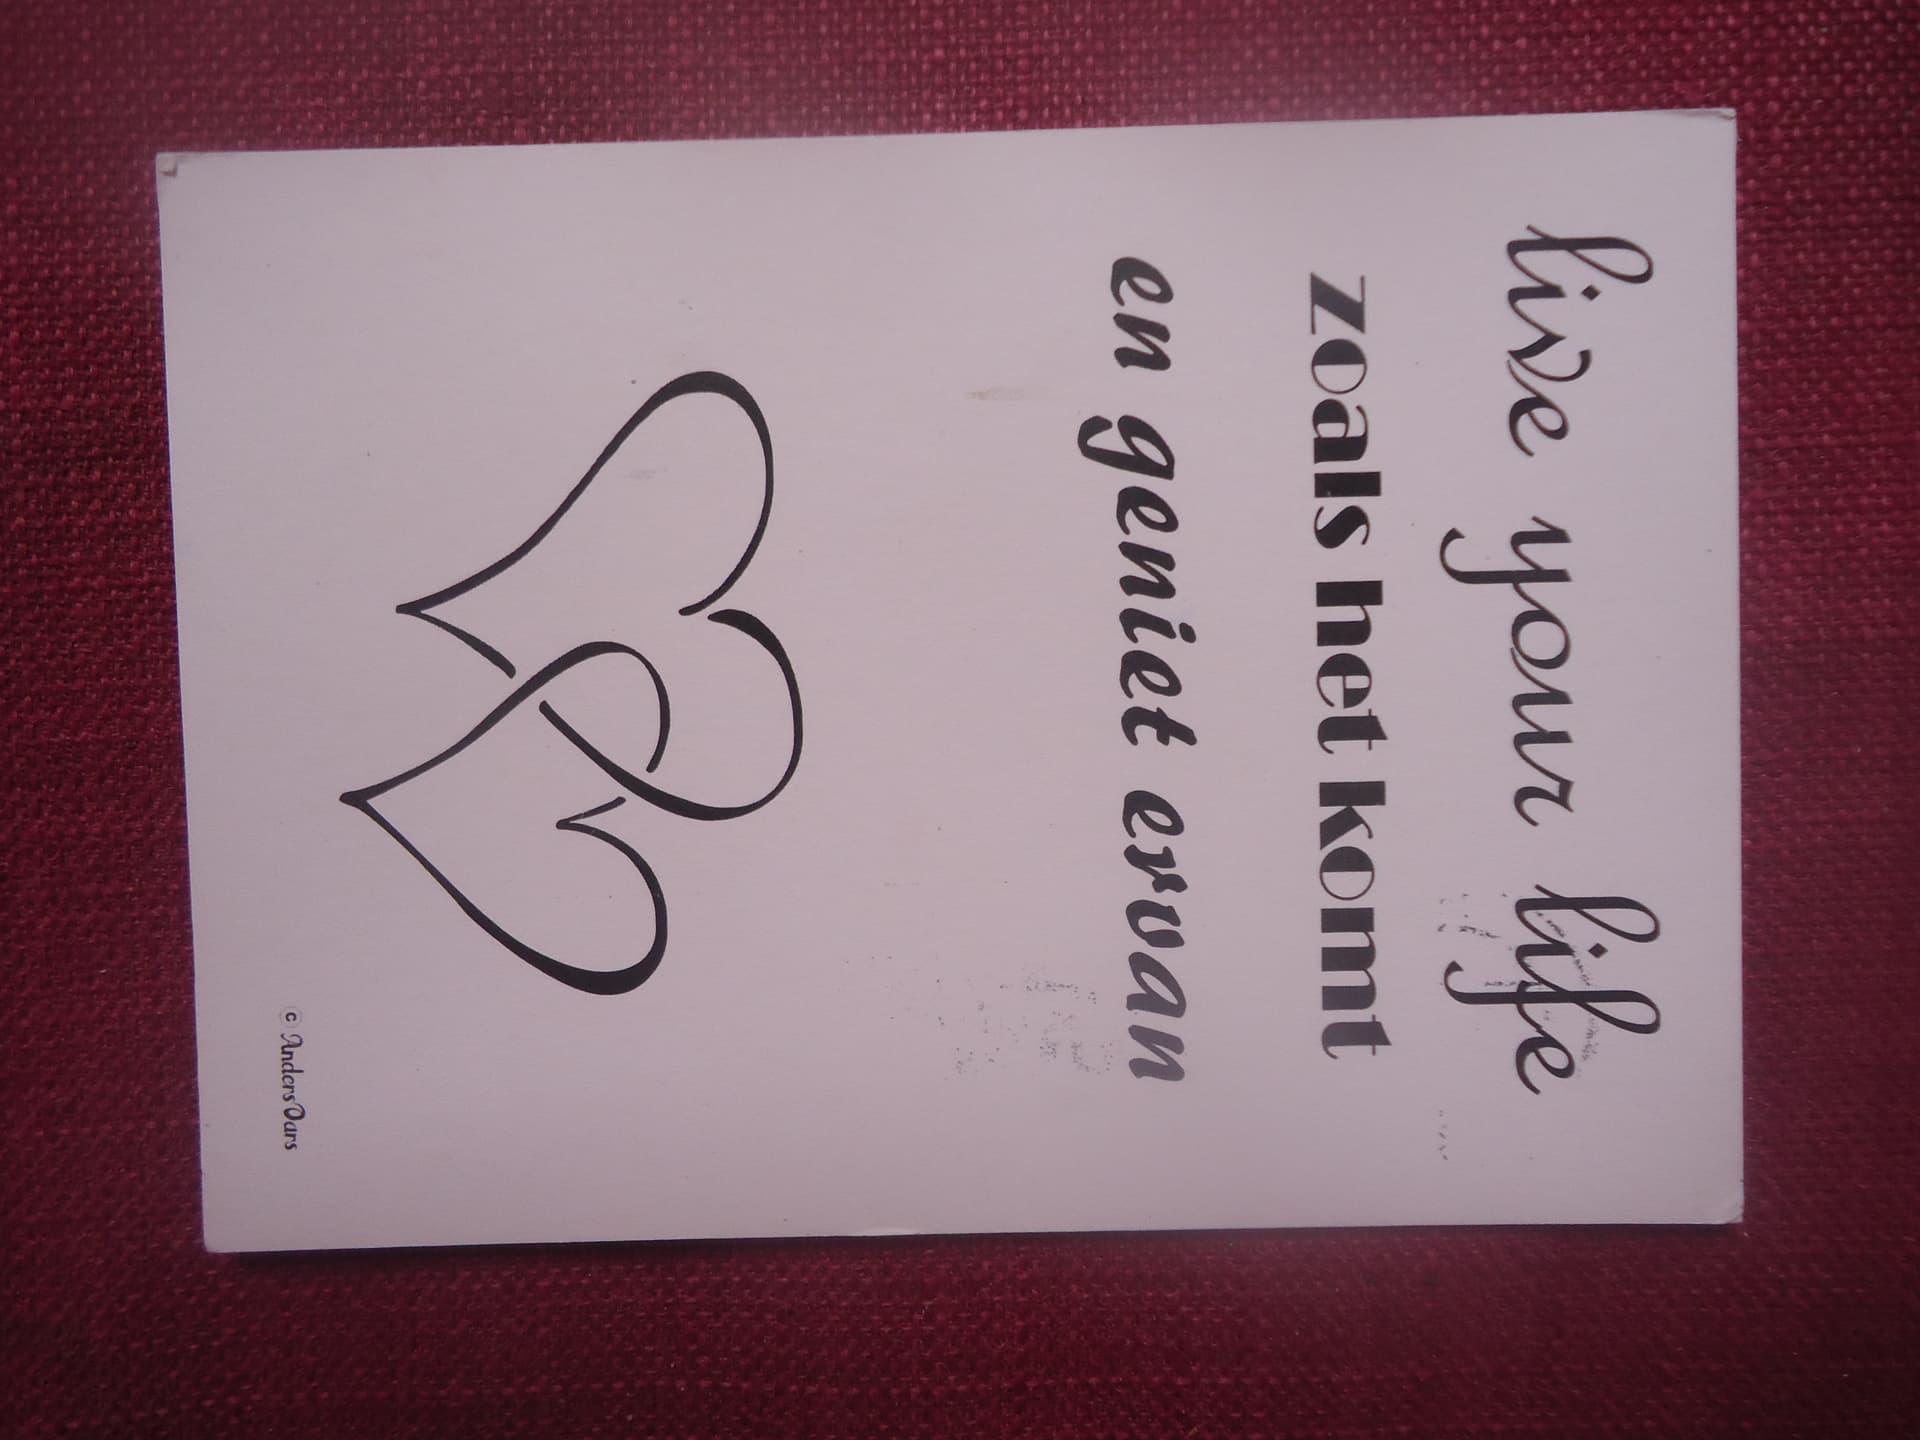 live your life
zoals het komt
en geniet ervan
© AndersDars